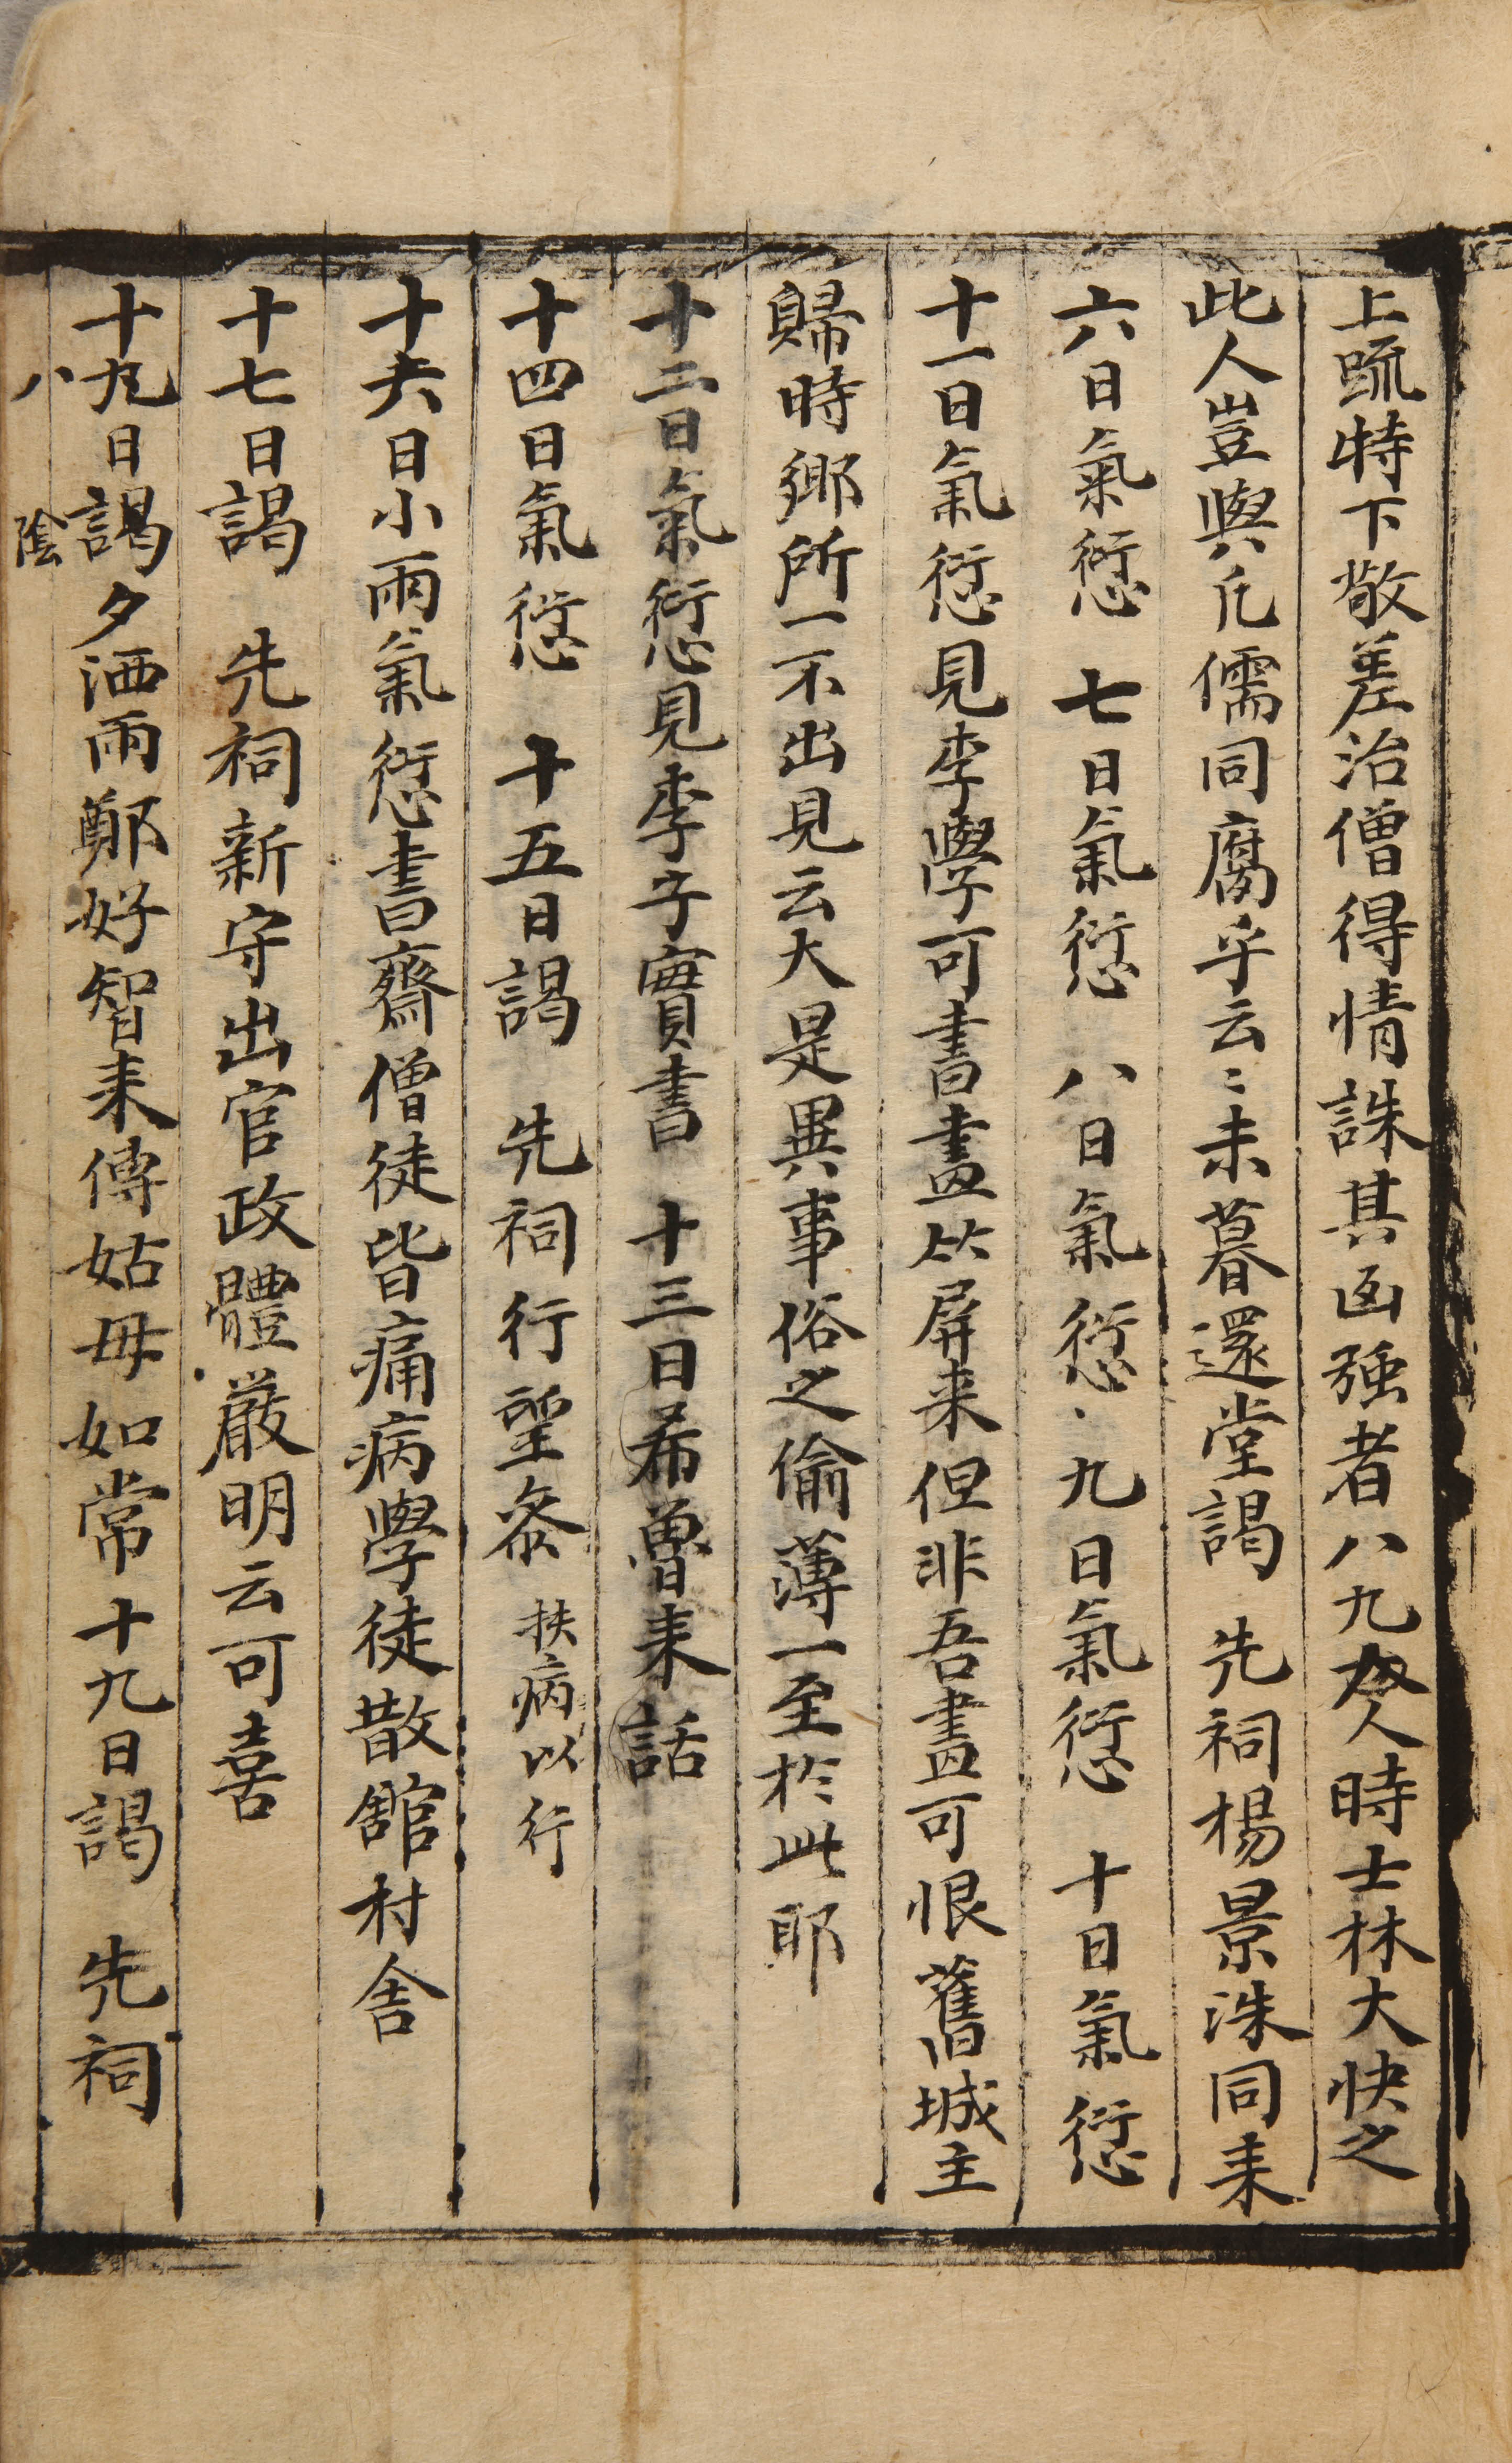 上疏特下敬差治僧得情誅其凶强者八九人時士林大快之
此人豈與凡儒同腐乎云〻未暮還堂謁 先祠楊景洙同来
六日氣愆 七日氣愆 八日氣愆 九日氣愆 十日氣愆
十一日氣愆見李學可書畫竹屏来但非吾畫可恨舊城主
歸時鄉所一不出見云大是異事俗之偷薄一至於此耶
十二日氣愆見李子實書 十三日希魯来話
十四日氣愆 十五日謁 先祠行望奠扶病以行
十六日小雨氣愆書齋僧徒皆痛病學徒散舘村舍
十七日謁 先祠新守出官政體嚴明云可喜
十九日謁夕洒雨鄭好智来傳姑母如常十九日謁 先祠
八 陰